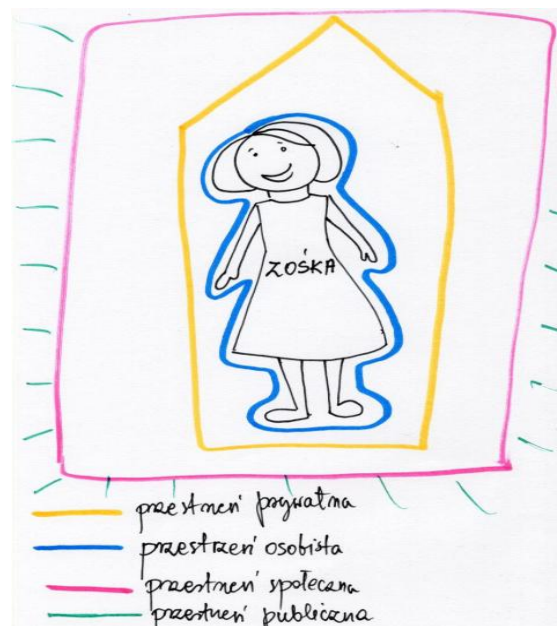 ZOŚKA
przestrzeń prywatna
przestrzeń osobista
przestrzeń społeczna
przestrzeń publiczna